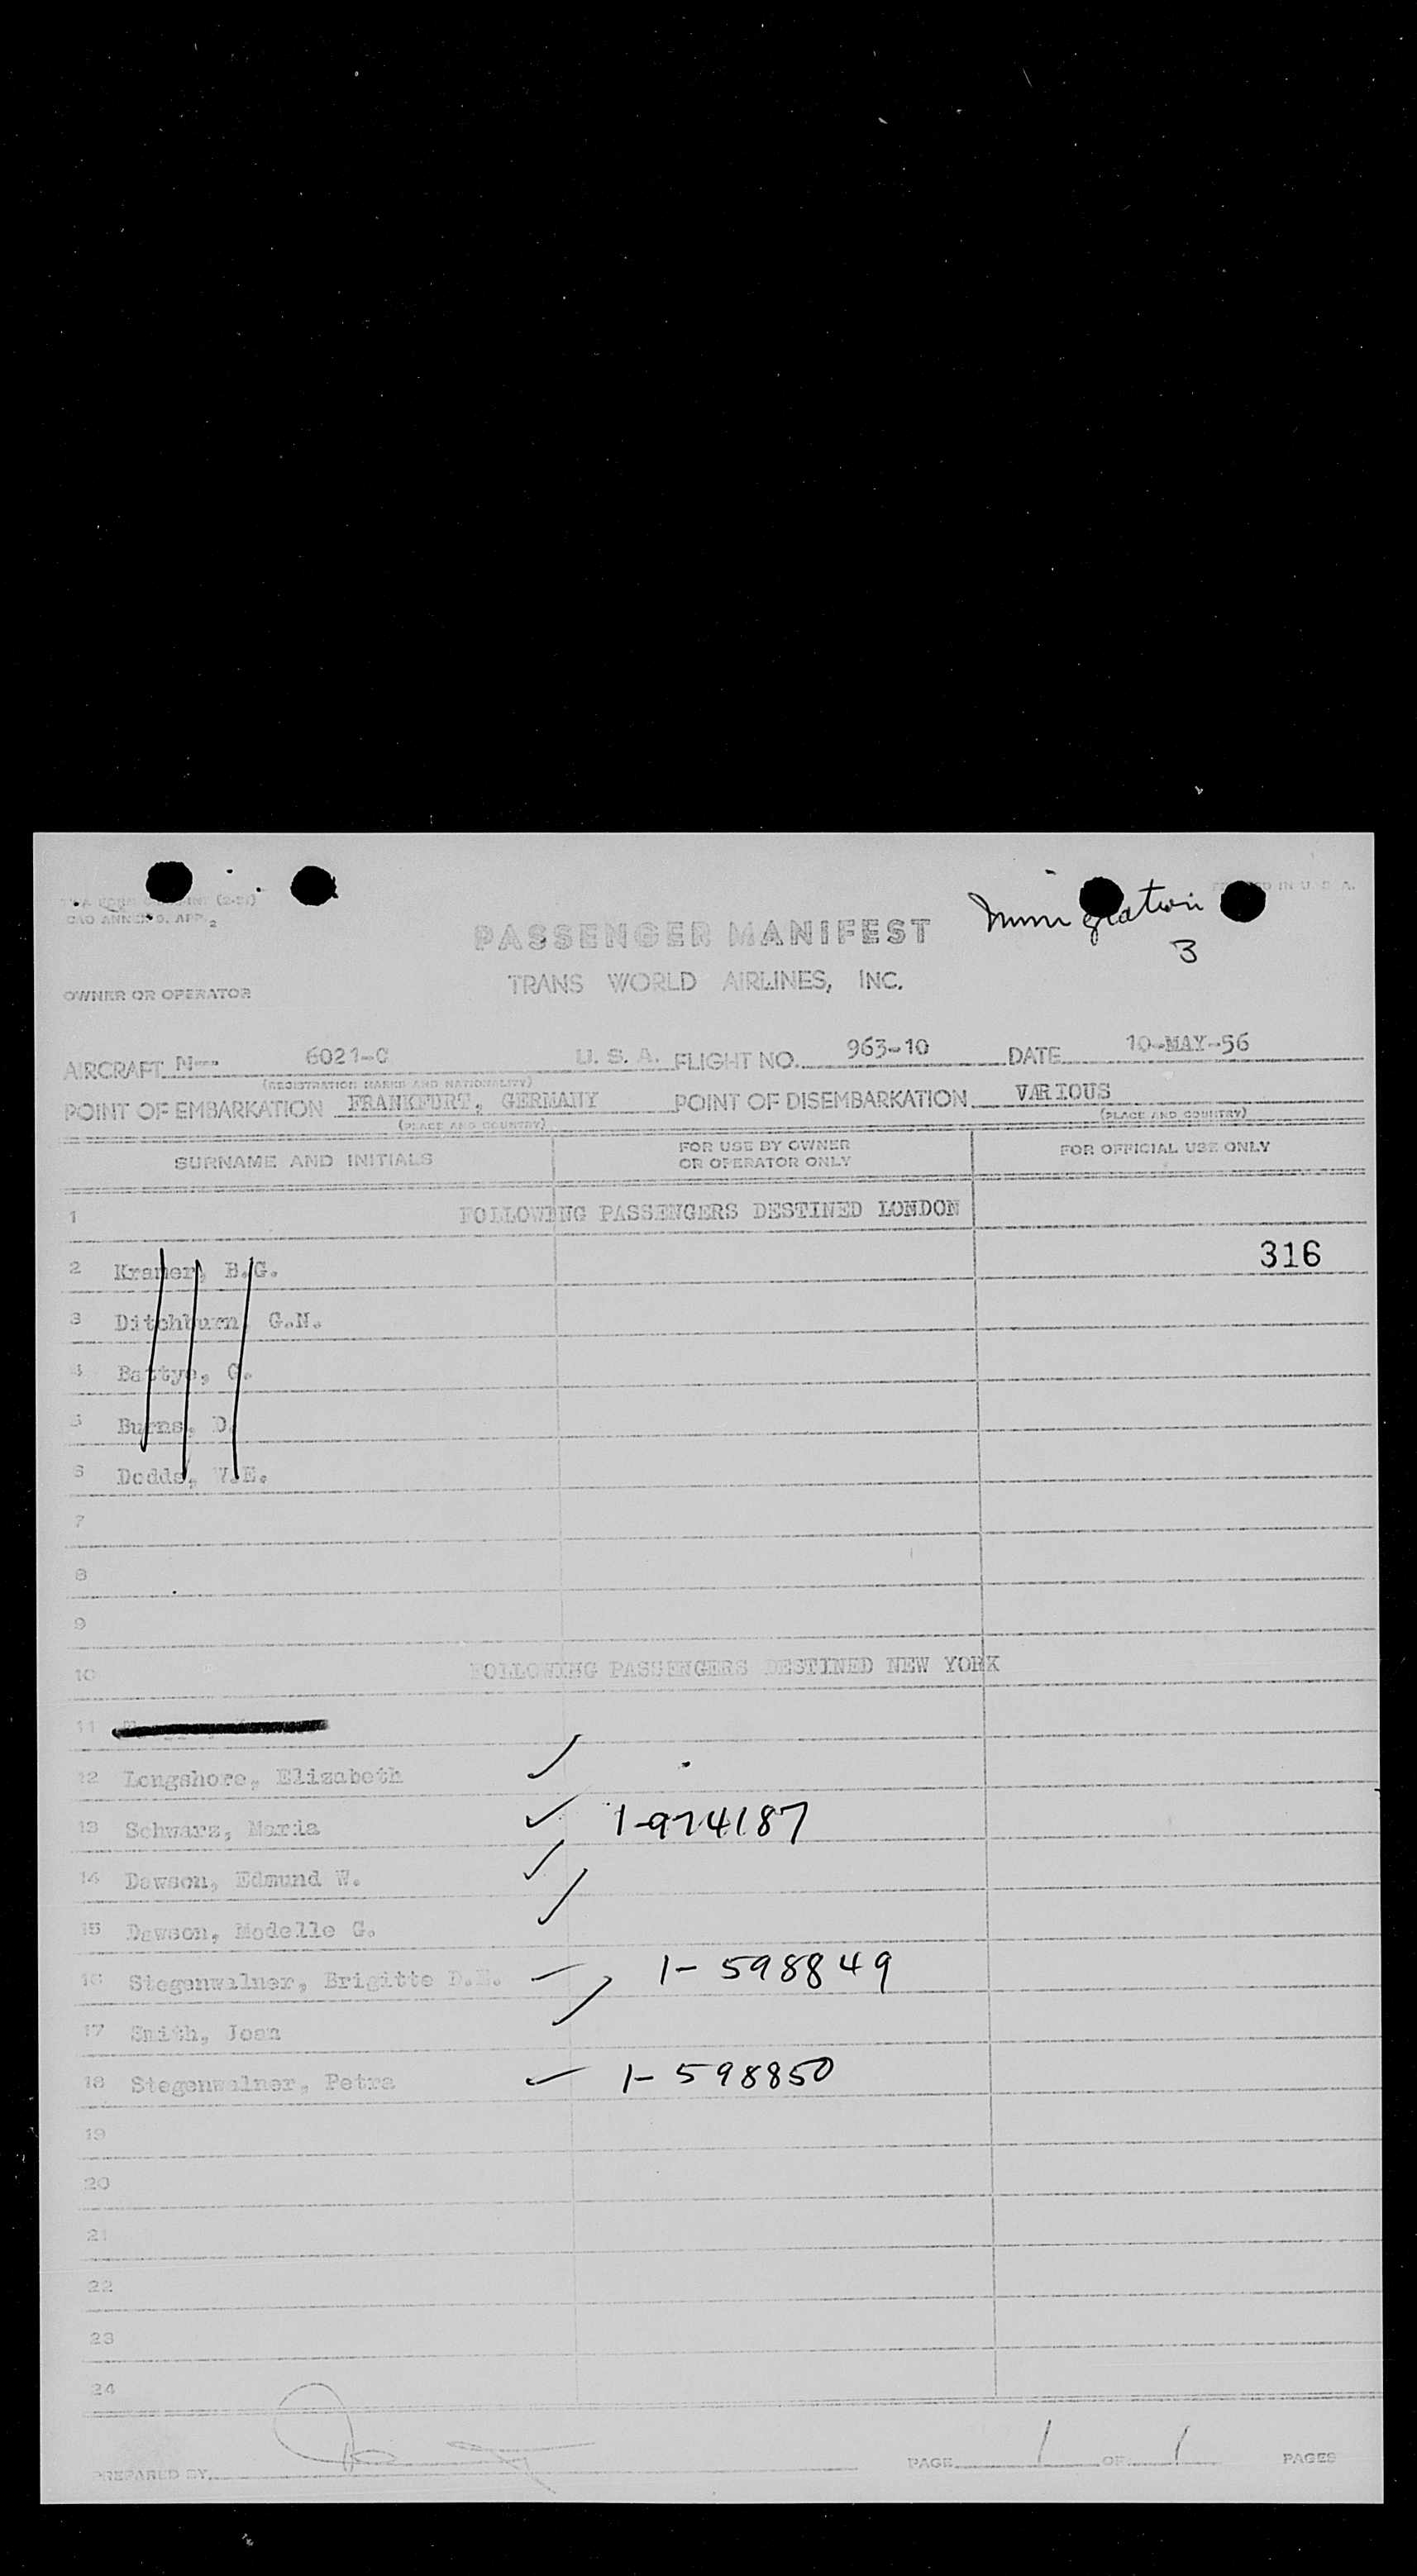 (2-51)
ICAO ANNEX 9, APP. 2
PRINTED IN U. S. A.
Immigration
3
PASSENGER MANIFEST
TRANS WORLD AIRLINES, INC.
OWNER OR OPERATOR
AIRCRAFT N-- 6021-C U. S. A. FLIGHT NO. 963-10 DATE 10-MAY-56
(REGISTRATION MARKS AND NATIONALITY)
POINT OF EMBARKATION FRANKFURT, GERMANY POINT OF DISEMBARKATION VARIOUS
(PLACE AND COUNTRY) (PLACE AND COUNTRY)
SURNAME AND INITIALS FOR USE BY OWNER OR OPERATOR ONLY FOR OFFICIAL USE ONLY
1 FOLLOWING PASSENGERS DESTINED LONDON
316
2 Kramer, B.G.
3 Ditchburn, G.N.
4 Battye, G.
5 Burns, D.
6 Dodds, V.E.
7
8
9
10 FOLLOWING PASSENGERS DESTINED NEW YORK
11
12 Longshore, Elizabeth ✓
13 Schwarz, Maria ✓ 1-974187
14 Dawson, Edmund W. ✓
15 Dawson, Modelle G. ✓
16 Stegenwalner, Brigitte D.E. ✓ 1-598849
17 Smith, Joan ✓
18 Stegenwalner, Petra ✓ 1-598850
19
20
21
22
23
24
PREPARED BY PAGE 1 OF 1 PAGES